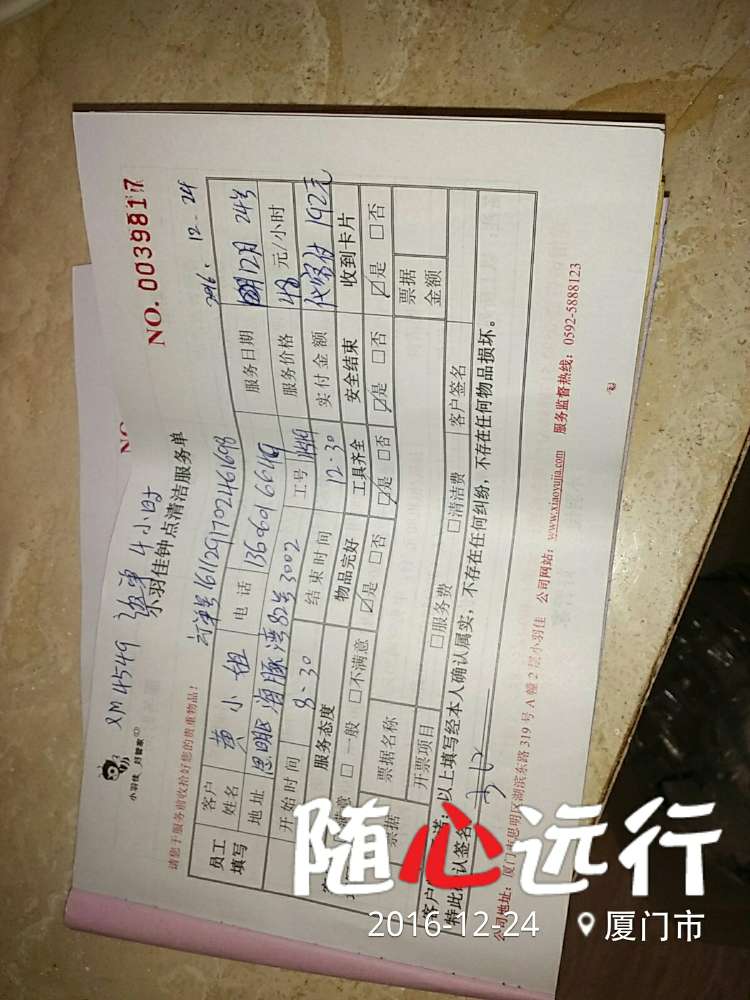 XM4549 4小时
NO. 0039817
小羽佳 好管家
小羽佳钟点清洁服务单
2016.12.24
请您于服务前收拾好您的贵重物品!
员工填写
客户姓名 黄小姐 电话 服务日期 12月24号
地址 思明区海豚湾82号3002 工号 服务价格 48元/小时
开始时间 8.30 结束时间 12.30 实付金额 192元
服务态度 物品完好 工具齐全 安全结束 收到卡片
□一般 □不满意 ☑是 □否 ☑是 □否 ☑是 □否 ☑是 □否
票据 票据名称 票据金额
开票项目 □服务费 □清洁费 客户签名
以上填写经本人确认属实,不存在任何纠纷,不存在任何物品损坏。
特此 认签名:
公司地址:厦门市思明区湖滨东路319号A幢2层小羽佳 公司网站:www.xiaoyujia.com 服务监督热线:0592-5888123
随心远行
2016-12-24 厦门市